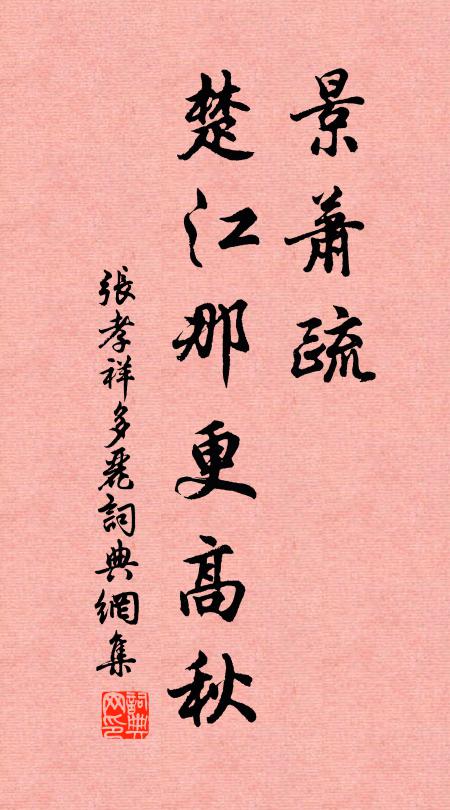 景蕭疏
楚江那更高秋
張孝祥多麗詞典網集
詞典网印